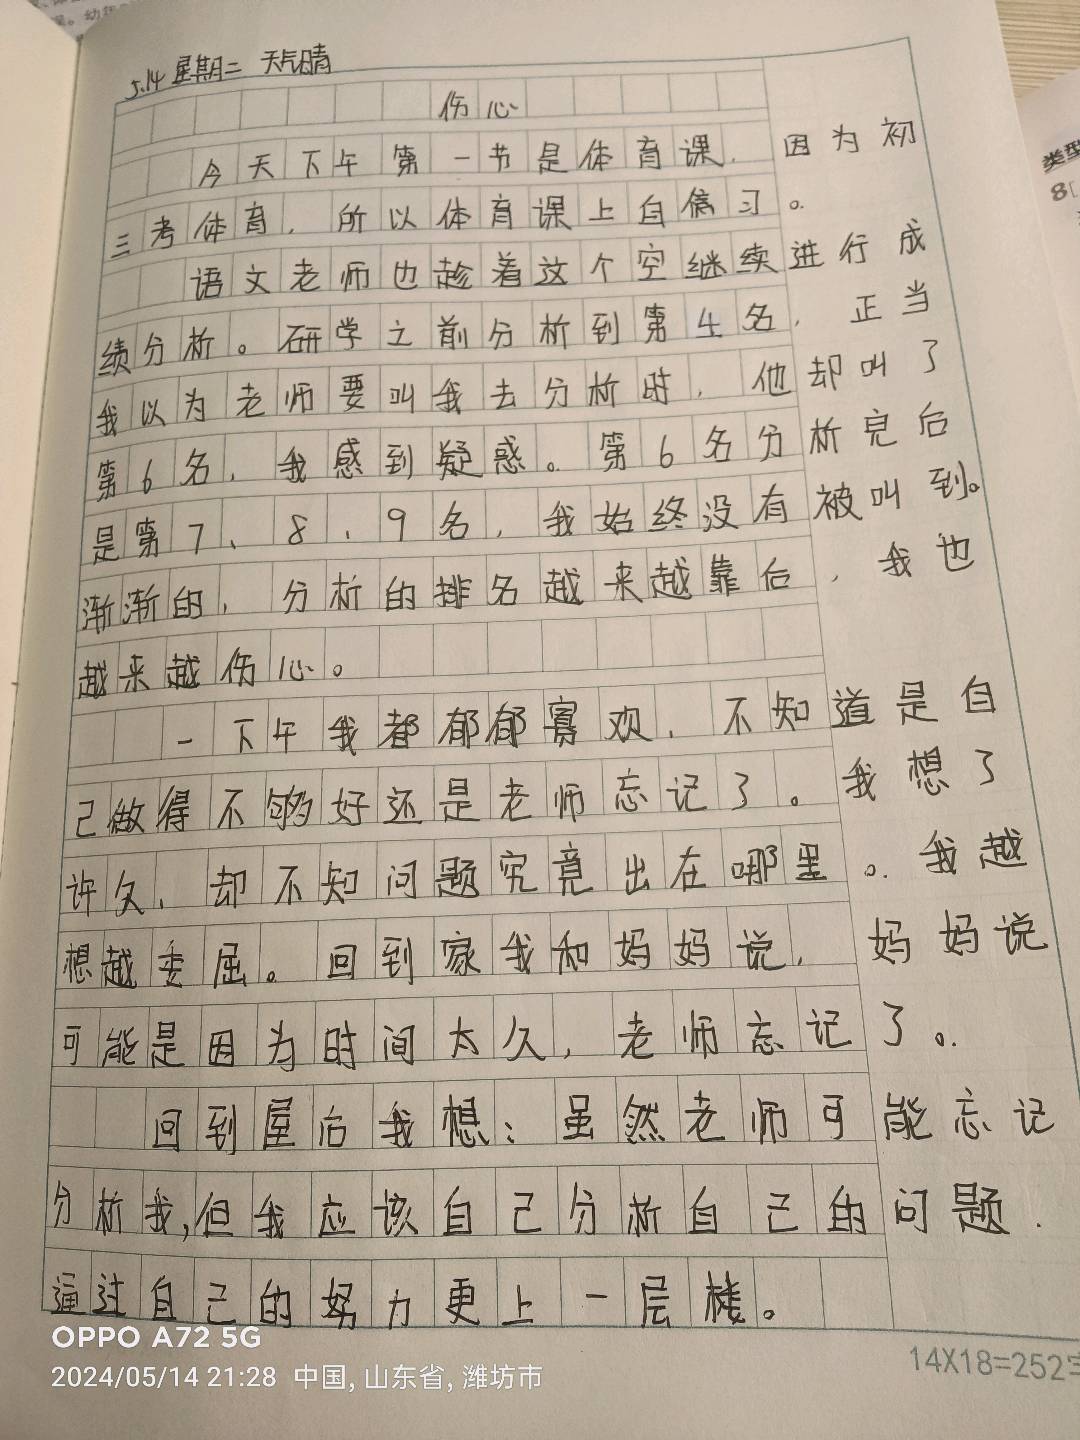 5.14 星期二 天气晴
伤心
今天下午第一节是体育课，因为初
三考体育，所以体育课上自修习。
语文老师也趁着这个空继续进行成
绩分析。研学之前分析到第4名，正当
我以为老师要叫我去分析时，他却叫了
第6名，我感到疑惑。第6名分析完后
是第7、8、9名，我始终没有被叫到。
渐渐的，分析的排名越来越靠后，我也
越来越伤心。
一下午我都郁郁寡欢，不知道是自
己做得不够好还是老师忘记了。我想了
许久，却不知问题究竟出在哪里。我越
想越委屈。回到家我和妈妈说，妈妈说
可能是因为时间太久，老师忘记了。
回到屋后我想：虽然老师可能忘记
分析我，但我应该自己分析自己的问题．
通过自己的努力更上一层楼。
OPPO A72 5G
2024/05/14 21:28 中国, 山东省, 潍坊市
14X18=252
类型
8